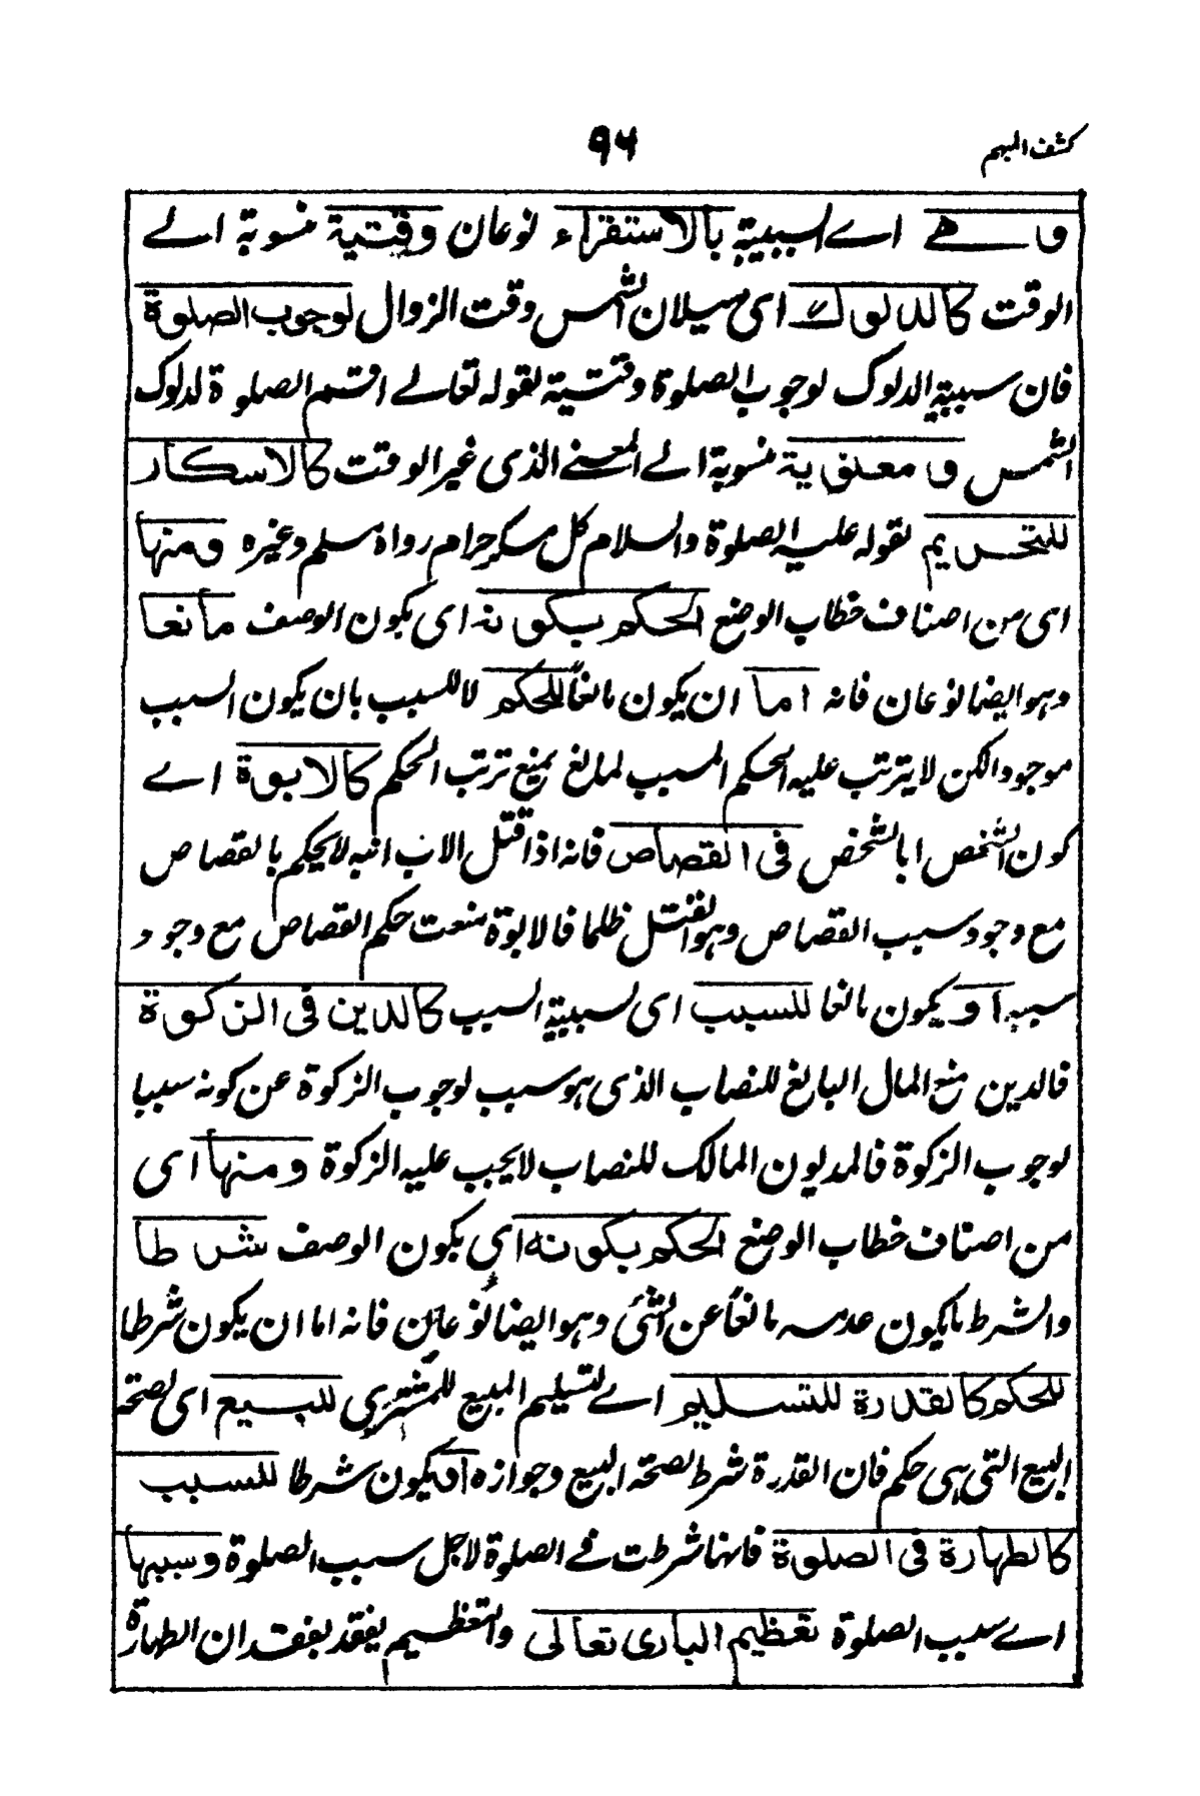 كشف المبهم
٩٦
وهے اے السببية بالاستقراء نوعان وقتية منسوبة الے
الوقت كالدلوك اى ميلان الشمس وقت الزوال لوجوب الصلوة
فان سببية الدلوك لوجوب الصلوة وقتية لقوله تعالے اقم الصلوة لدلوك
الشمس ومعنوية منسوبة الے المعنے الذى غير الوقت كالاسكار
للتحريم لقوله عليه الصلوة والسلام كل مسكر حرام رواه مسلم وغيره ومنها
اى من اصناف خطاب الوضع الحكم بكونه اى بكون الوصف مانعا
وهو ايضا نوعان فانه اما ان يكون مانعاً للحكم لا للسبب بان يكون السبب
موجودا لكن لا يترتب عليه الحكم المسبب لمانع يمنع ترتب الحكم كالابوة اے
كون الشخص ابا لشخص فى القصاص فانه اذا قتل الاب ابنه لا يحكم بالقصاص
مع وجود سبب القصاص وهو القتل ظلما فالابوة منعت حكم القصاص مع وجود
سببه او يكون مانعا للسبب اى لسببية السبب كالدين فى الزكوة
فالدين منع المال البالغ للنصاب الذى هو سبب لوجوب الزكوة عن كونه سببا
لوجوب الزكوة فالمديون المالك للنصاب لا يجب عليه الزكوة ومنها اى
من اصناف خطاب الوضع الحكم بكونه اى بكون الوصف شرطا
والشرط ما يكون عدمه مانعاً عن الشئ وهو ايضا نوعان فانه اما ان يكون شرطا
للحكم كالقدرة للتسليم اے لتسليم المبيع للمشترى للبيع اى لصحة
البيع التى هى حكم فان القدرة شرط لصحة البيع وجوازه او يكون شرطا للسبب
كالطهارة فى الصلوة فانها شرطت فے الصلوة لاجل سبب الصلوة وسببها
اے سبب الصلوة تعظيم البارى تعالى والتعظيم يفقد بفقدان الطهارة